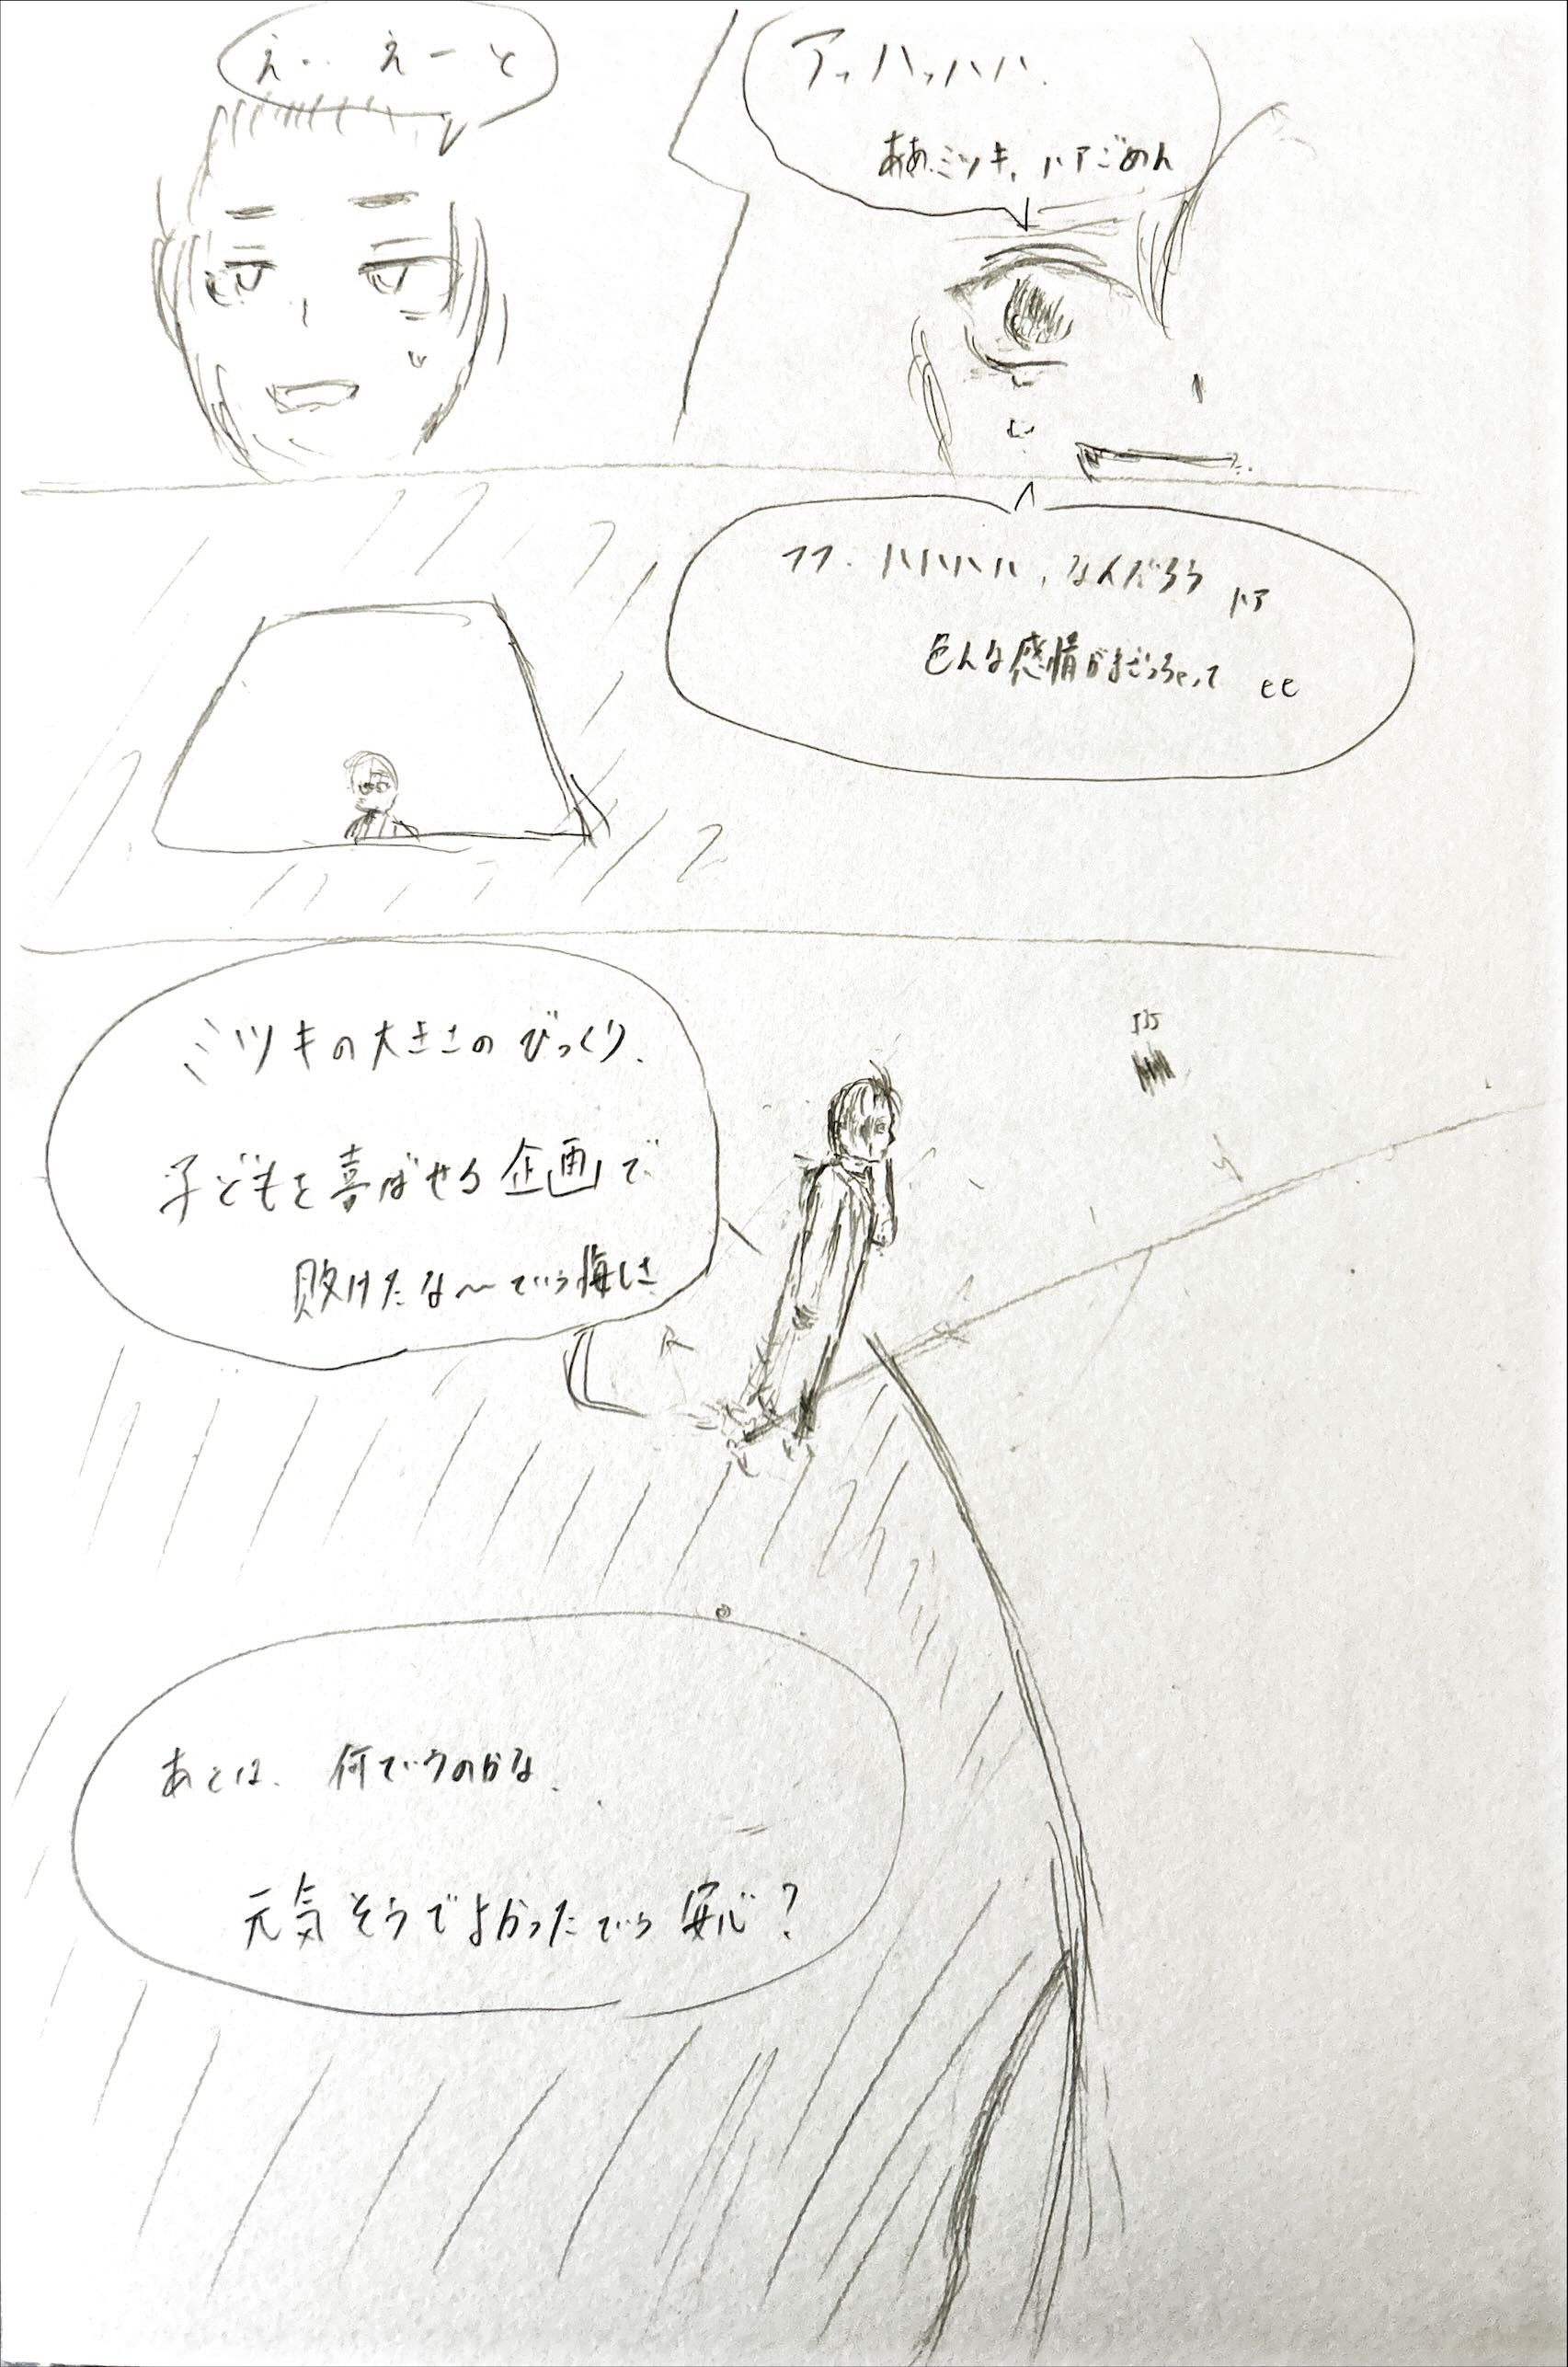 アッハッハハ
ああミツキ、ハアごめん
え… えーと
フフ、ハハハハ、なんだろう ハア
色んな感情がまざっちゃって ヒヒ
ミツキの大きさのびっくり、
子どもを喜ばせる企画で
敗けたな〜ていう悔しさ
あとは、何ていうのかな、
元気そうでよかったていう安心?